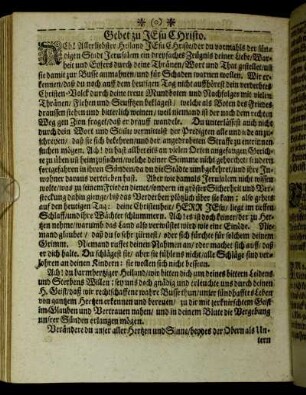 Gebet zu JEsu CHristo.
ACh! Allerliebster Heiland JEsu Christe/der du vormahls der sün-
digen Stadt Jerusalem ein dreyfaches Zeugnis deiner Liebe/War-
heit und Eyfers durch deine Thränen/Wort und That gestellet/und
sie damit zur Busse anmahnen/und für Schaden warnen wollen. Wir er-
kennen/daß du noch auf dem heutigen Tag nicht aufhörest dein verkehrtes
Christen-Volck durch deine treue Mundboten und Nachfolger mit vielen
Thränen/Flehen und Seufftzen
draussen stehen und bitterlich weinen/
Weg zum Frieden
durch dein Wort und
zeiget/ daß sie sich bekehren/und der angedroheten Straffe zu entrinnen
suchen mögen. Ach! du hast allbereits an vielen Orten angefangen Gerich-
te zu üben
fortgefahren in ihren Sünden/da du die Städte umbgekehret/und ihre Jn-
wohner daraus vertrieben hast. Aber was damals Jerusalem nicht wissen
wolte/was zu seinem Frieden dienet/sondern in grösster Sicherheit und Ver-
stockung dahin gienge/biß das Verderben plötzlich über sie kam: also gehets
auf den heutigen Tag: deine Christenheit/HERR JESu/ liegt im tieffen
Schlaff/und ihre Wächter schlummern. Ach! es ist doch keiner/der zu Her-
tzen nehme/warumb das Land also verwüstet wird wie eine Einöde. Nie-
mand glaubet/ daß du so sehr zürnest/ oder sich fürchte für solchem deinem
Grimm. Niemand ruffet deinen Nahmen an/ oder machet sich auff/daß
er dich halte. Du schlägest sie/ aber sie fühlens nicht/alle Schläge sind ver-
lohren an deinen Kindern: sie wollen sich nicht bessern.
Ach! du barmhertziger Heiland/wir bitten dich um deines bittern Leidens
und Sterbens Willen: sey uns doch gnädig und erleuchte uns durch deinen
H. Geist/daß wir rechtschaffene wahre Busse thun/
von gantzem Hertzen erkennen und bereuen/ zu dir mit zerknirschtem Geist
im Glauben und Vertrauen nahen/ und in deinem Blute die Vergebung
unserer Sünden erlangen mögen.
Verändere du unser aller Hertzen und Sinne/beydes der Obern als Un-
tern